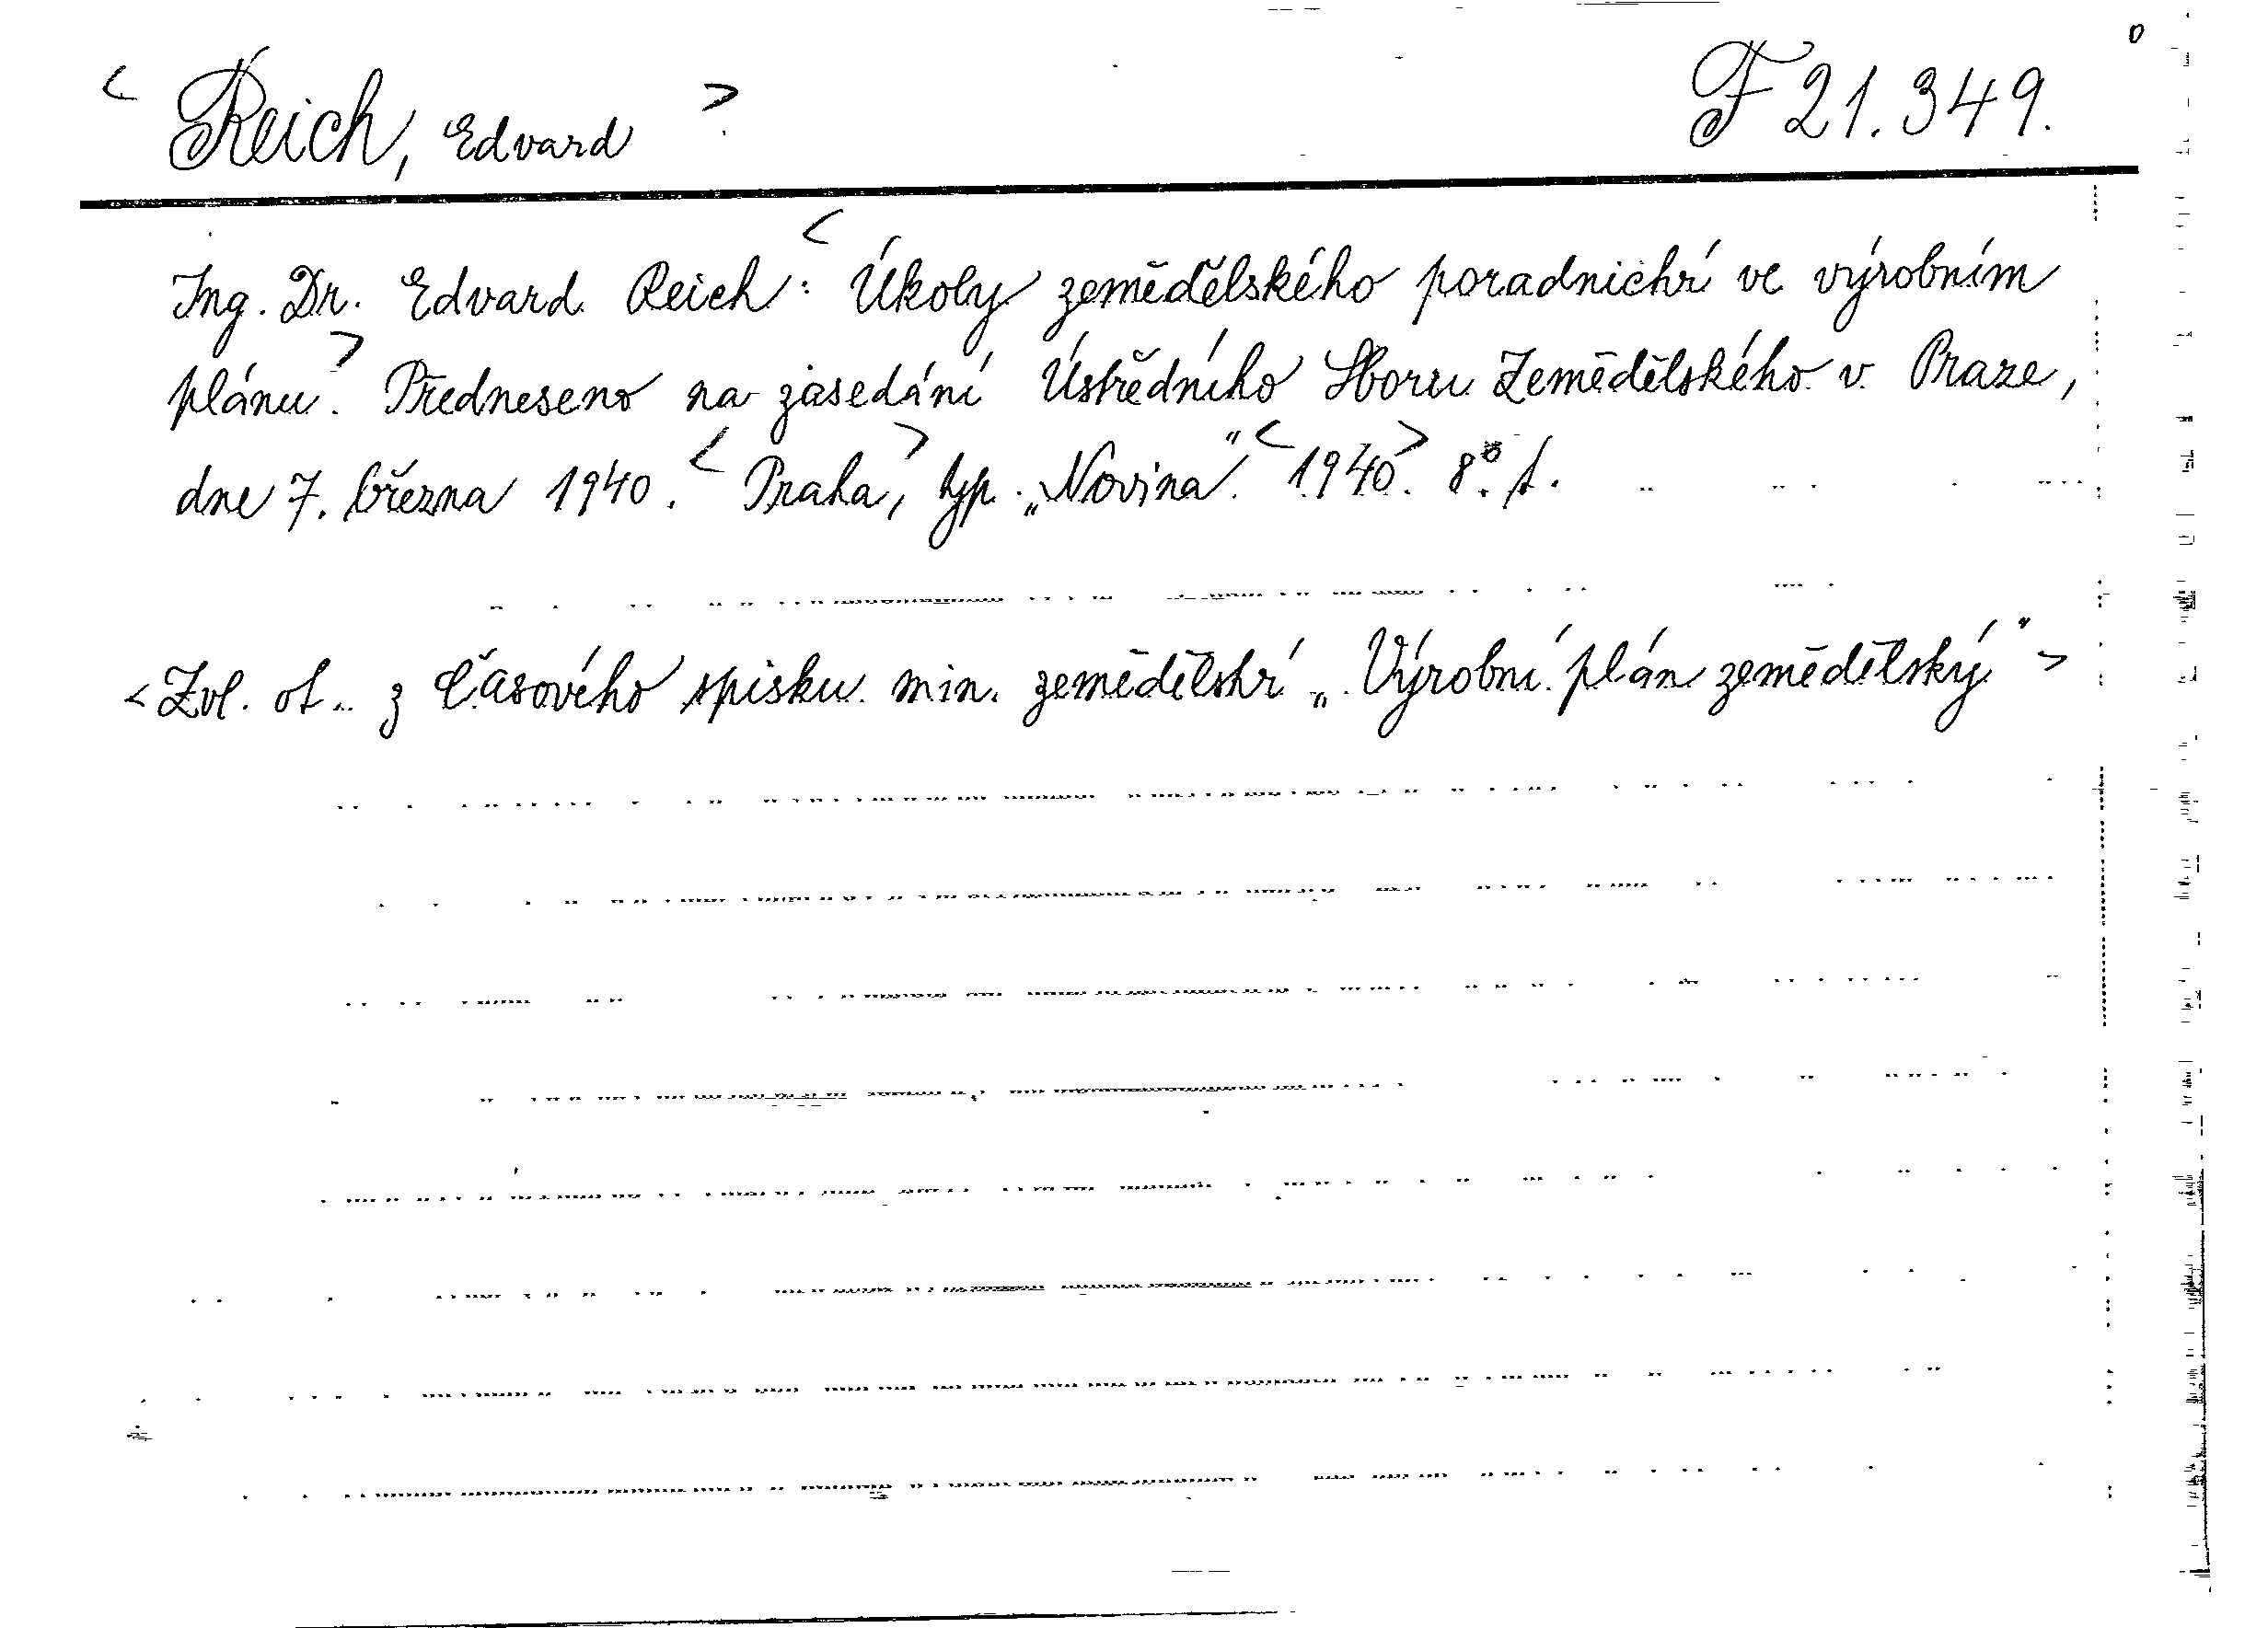 < Reich, Edvard > F 21.349.
Ing. Dr. Edvard Reich: < Úkoly zemědělského poradnictví ve výrobním
plánu. > Předneseno na zasedání Ústředního Sboru Zemědělského v Praze,
dne 7. března 1940. < Praha, > typ. „Novina“. < 1940 >. 8°. f.
< Zvl. ot. z Časového spisku min. zemědělství „Výrobní plán zemědělský“ >